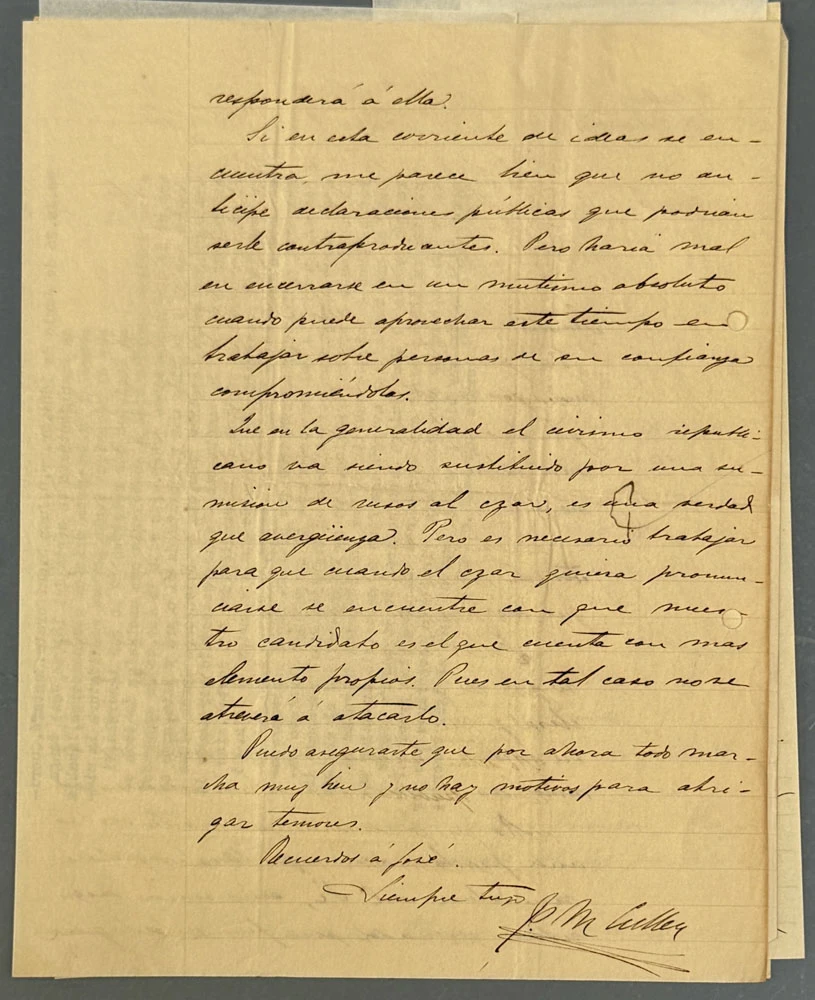 responderá á ella.
Si en esta corriente de ideas se en-
cuentra, me parece bien que no an-
ticipe declaraciones públicas que podrian
serle contraproducentes. Pero haria mal
en encerrarse en un mutismo absoluto
cuando puede aprovechar este tiempo en
trabajar sobre personas de su confianza
comprometiéndolas.
Que en la generalidad el civismo republi-
cano va siendo sustituido por una su-
mision de rusos al czar, es una verdad
que avergüenza. Pero es necesario trabajar
para que cuando el czar quiera pronun-
ciarse se encuentre con que nues-
tro candidato es el que cuenta con mas
elemento propios. Pues en tal caso no se
atreverá á atacarlo.
Puedo asegurarte que por ahora todo mar-
cha muy bien y no hay motivos para abri-
gar temores.
Recuerdos á José.
Siempre tuyo
J. M Cullen